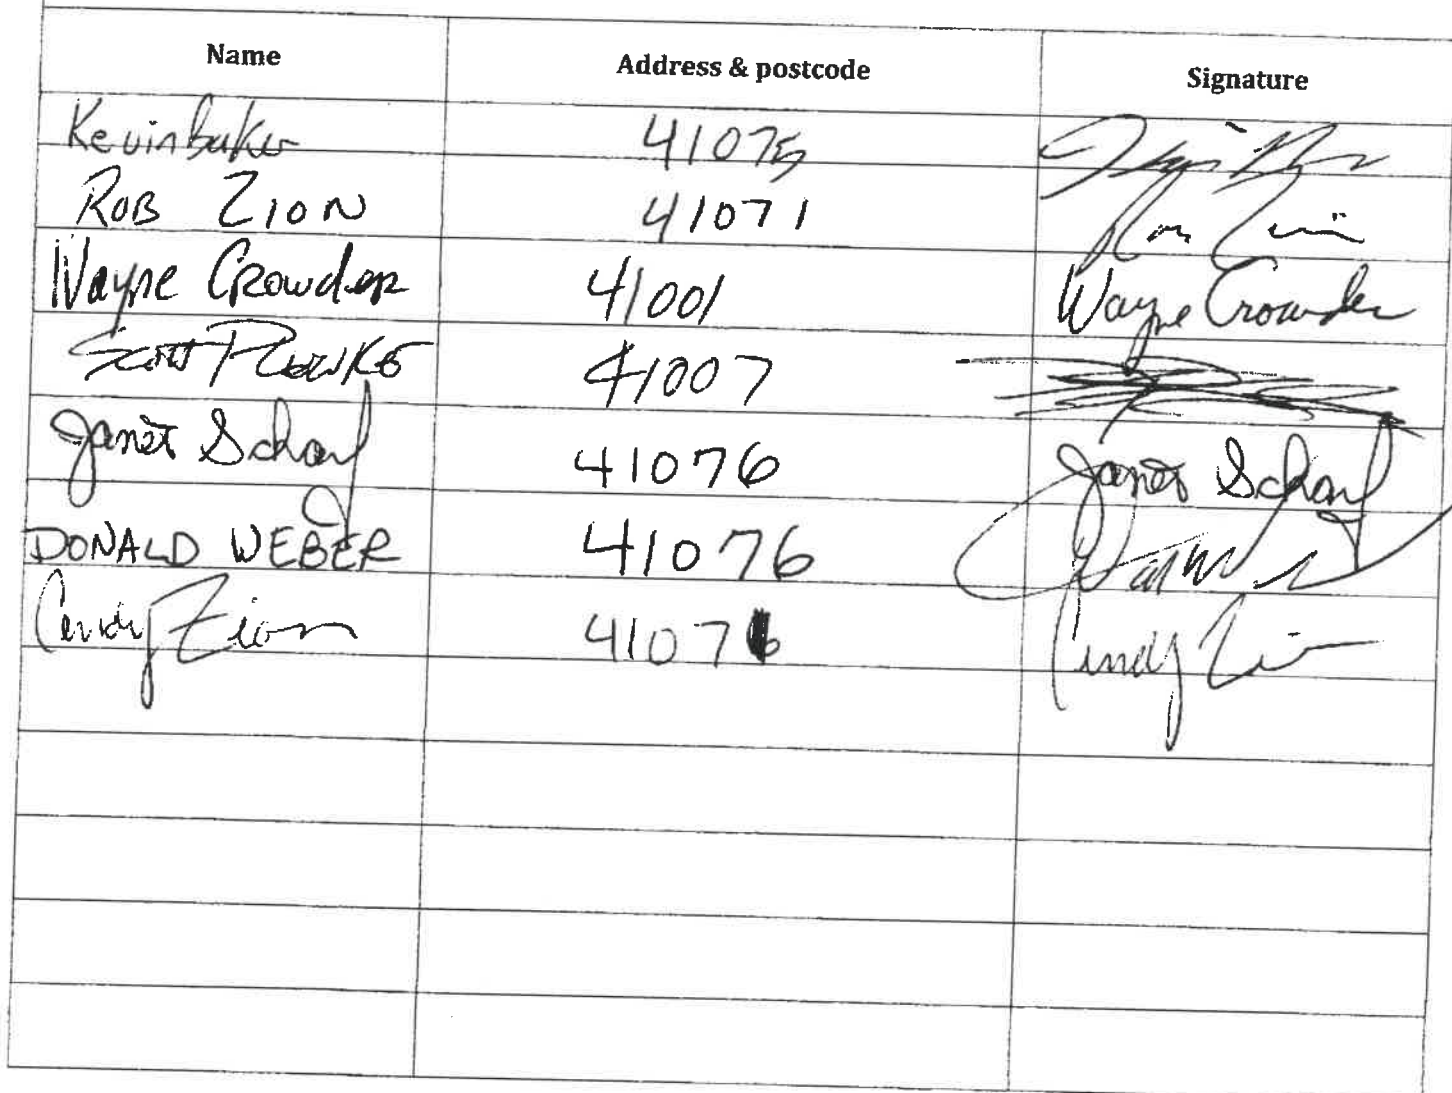 Name Address & postcode Signature
Kevin Baker 41075
Rob Zion 41071 Rob Zion
Wayne Crowder 41001 Wayne Crowder
Scott 41007
Janet Scharf 41076 Janet Scharf
DONALD WEBER 41076
Cindy Zion 41076 Cindy Zion